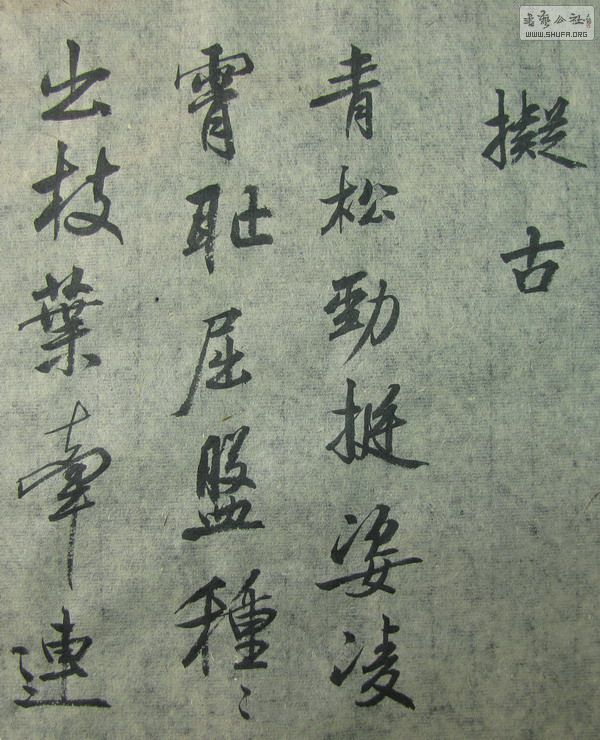 擬古
青松勁挺姿凌
霄恥屈盤種〻
出枝葉牽連
書藝公社
WWW.SHUFA.ORG